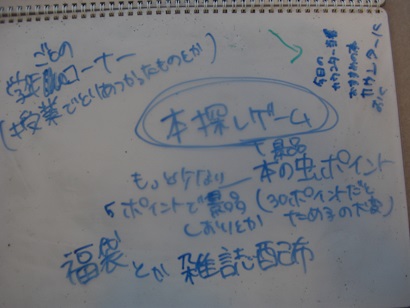 ごとの
学年別コーナー
(授業でとりあつかったものとか)
今日の
カウンター当番
おすすめの本
本探しゲーム
で景品
もっと少ない
本の虫ポイント
5ポイントで景品
(30ポイントだと
しおりとか
ためるの大変)
福袋とか雑誌配布